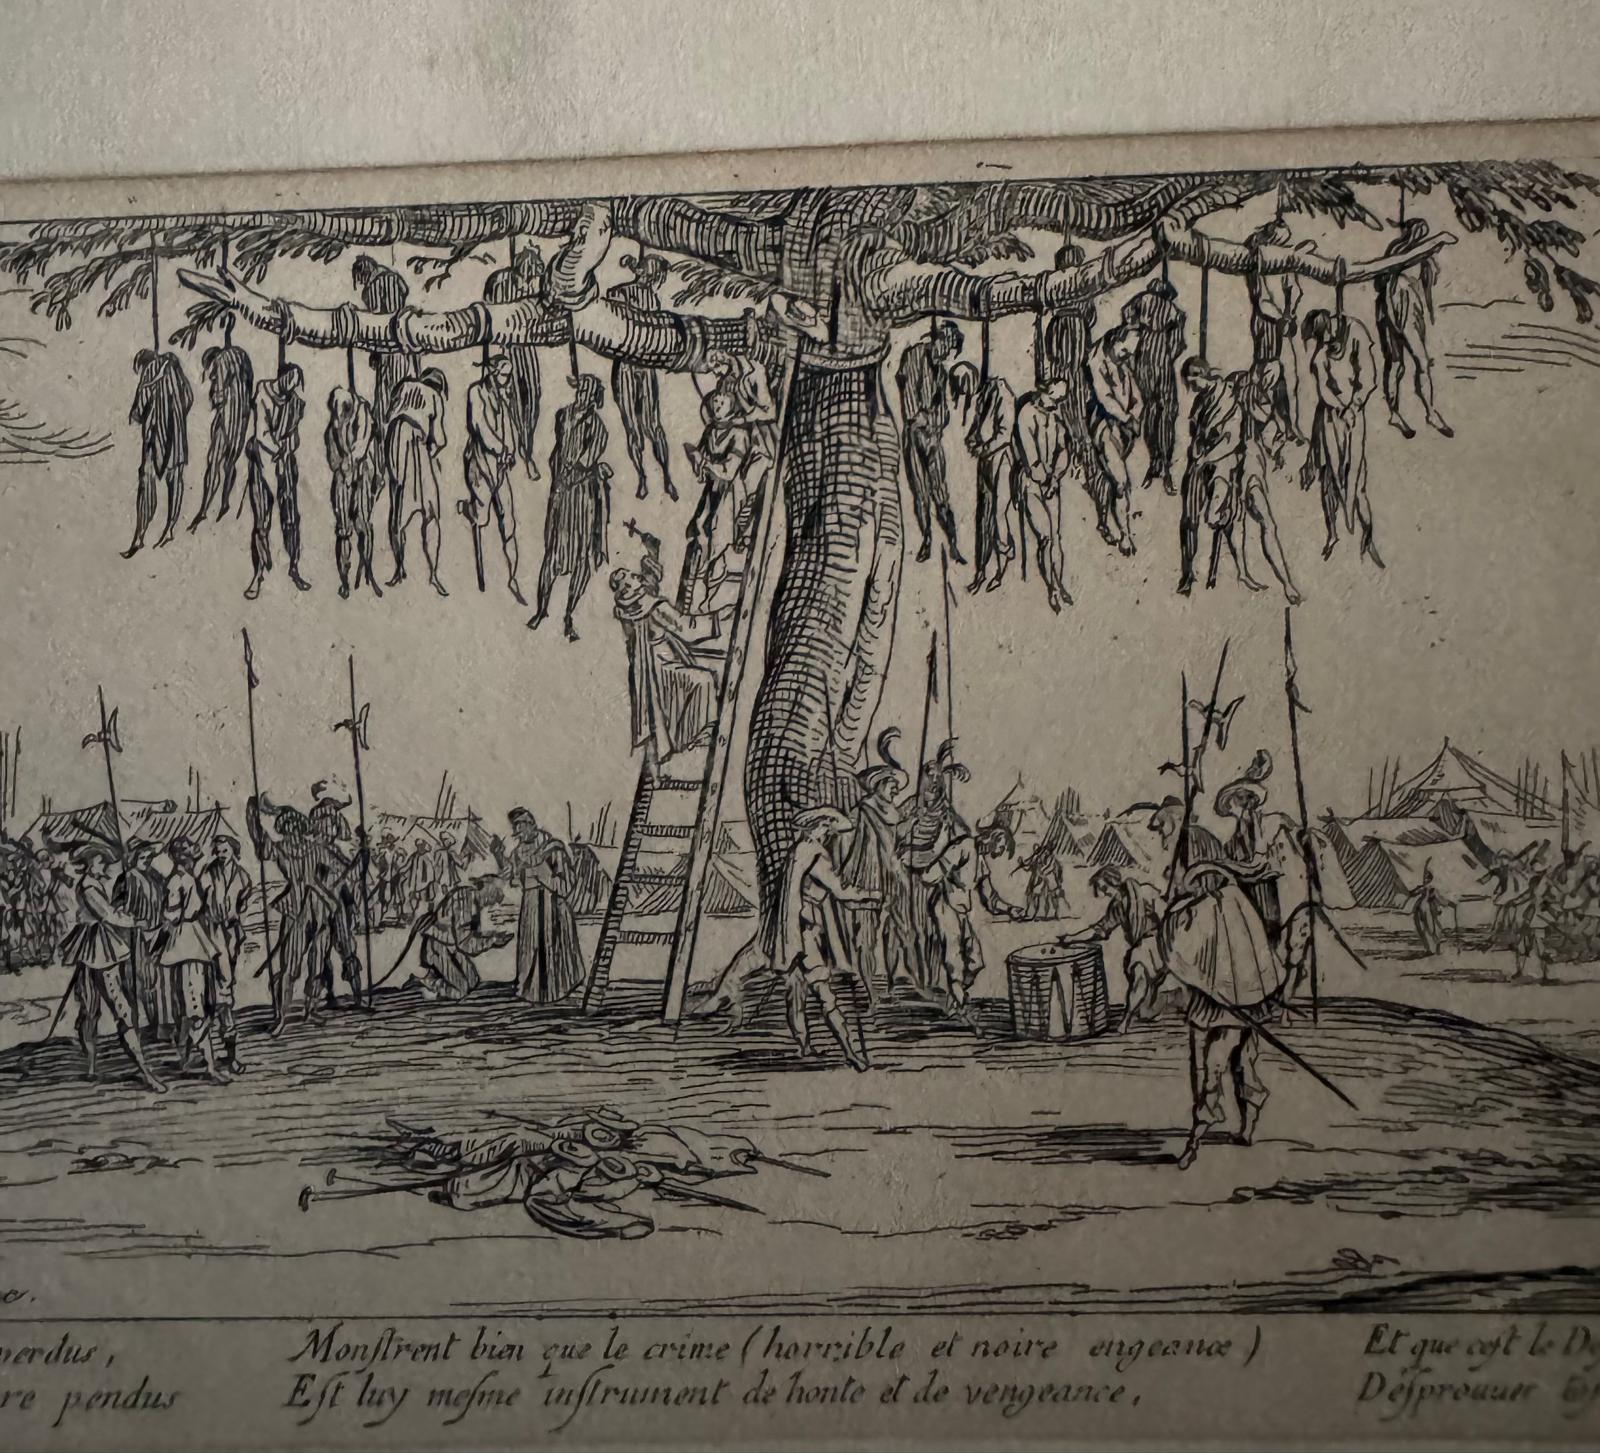 c.
perdus,
re pendus
Monſtrent bien que le crime (horrible et noire engeance)
Eſt luy meſme inſtrument de honte et de vengeance,
Et que ceſt le De
Deſprouuer